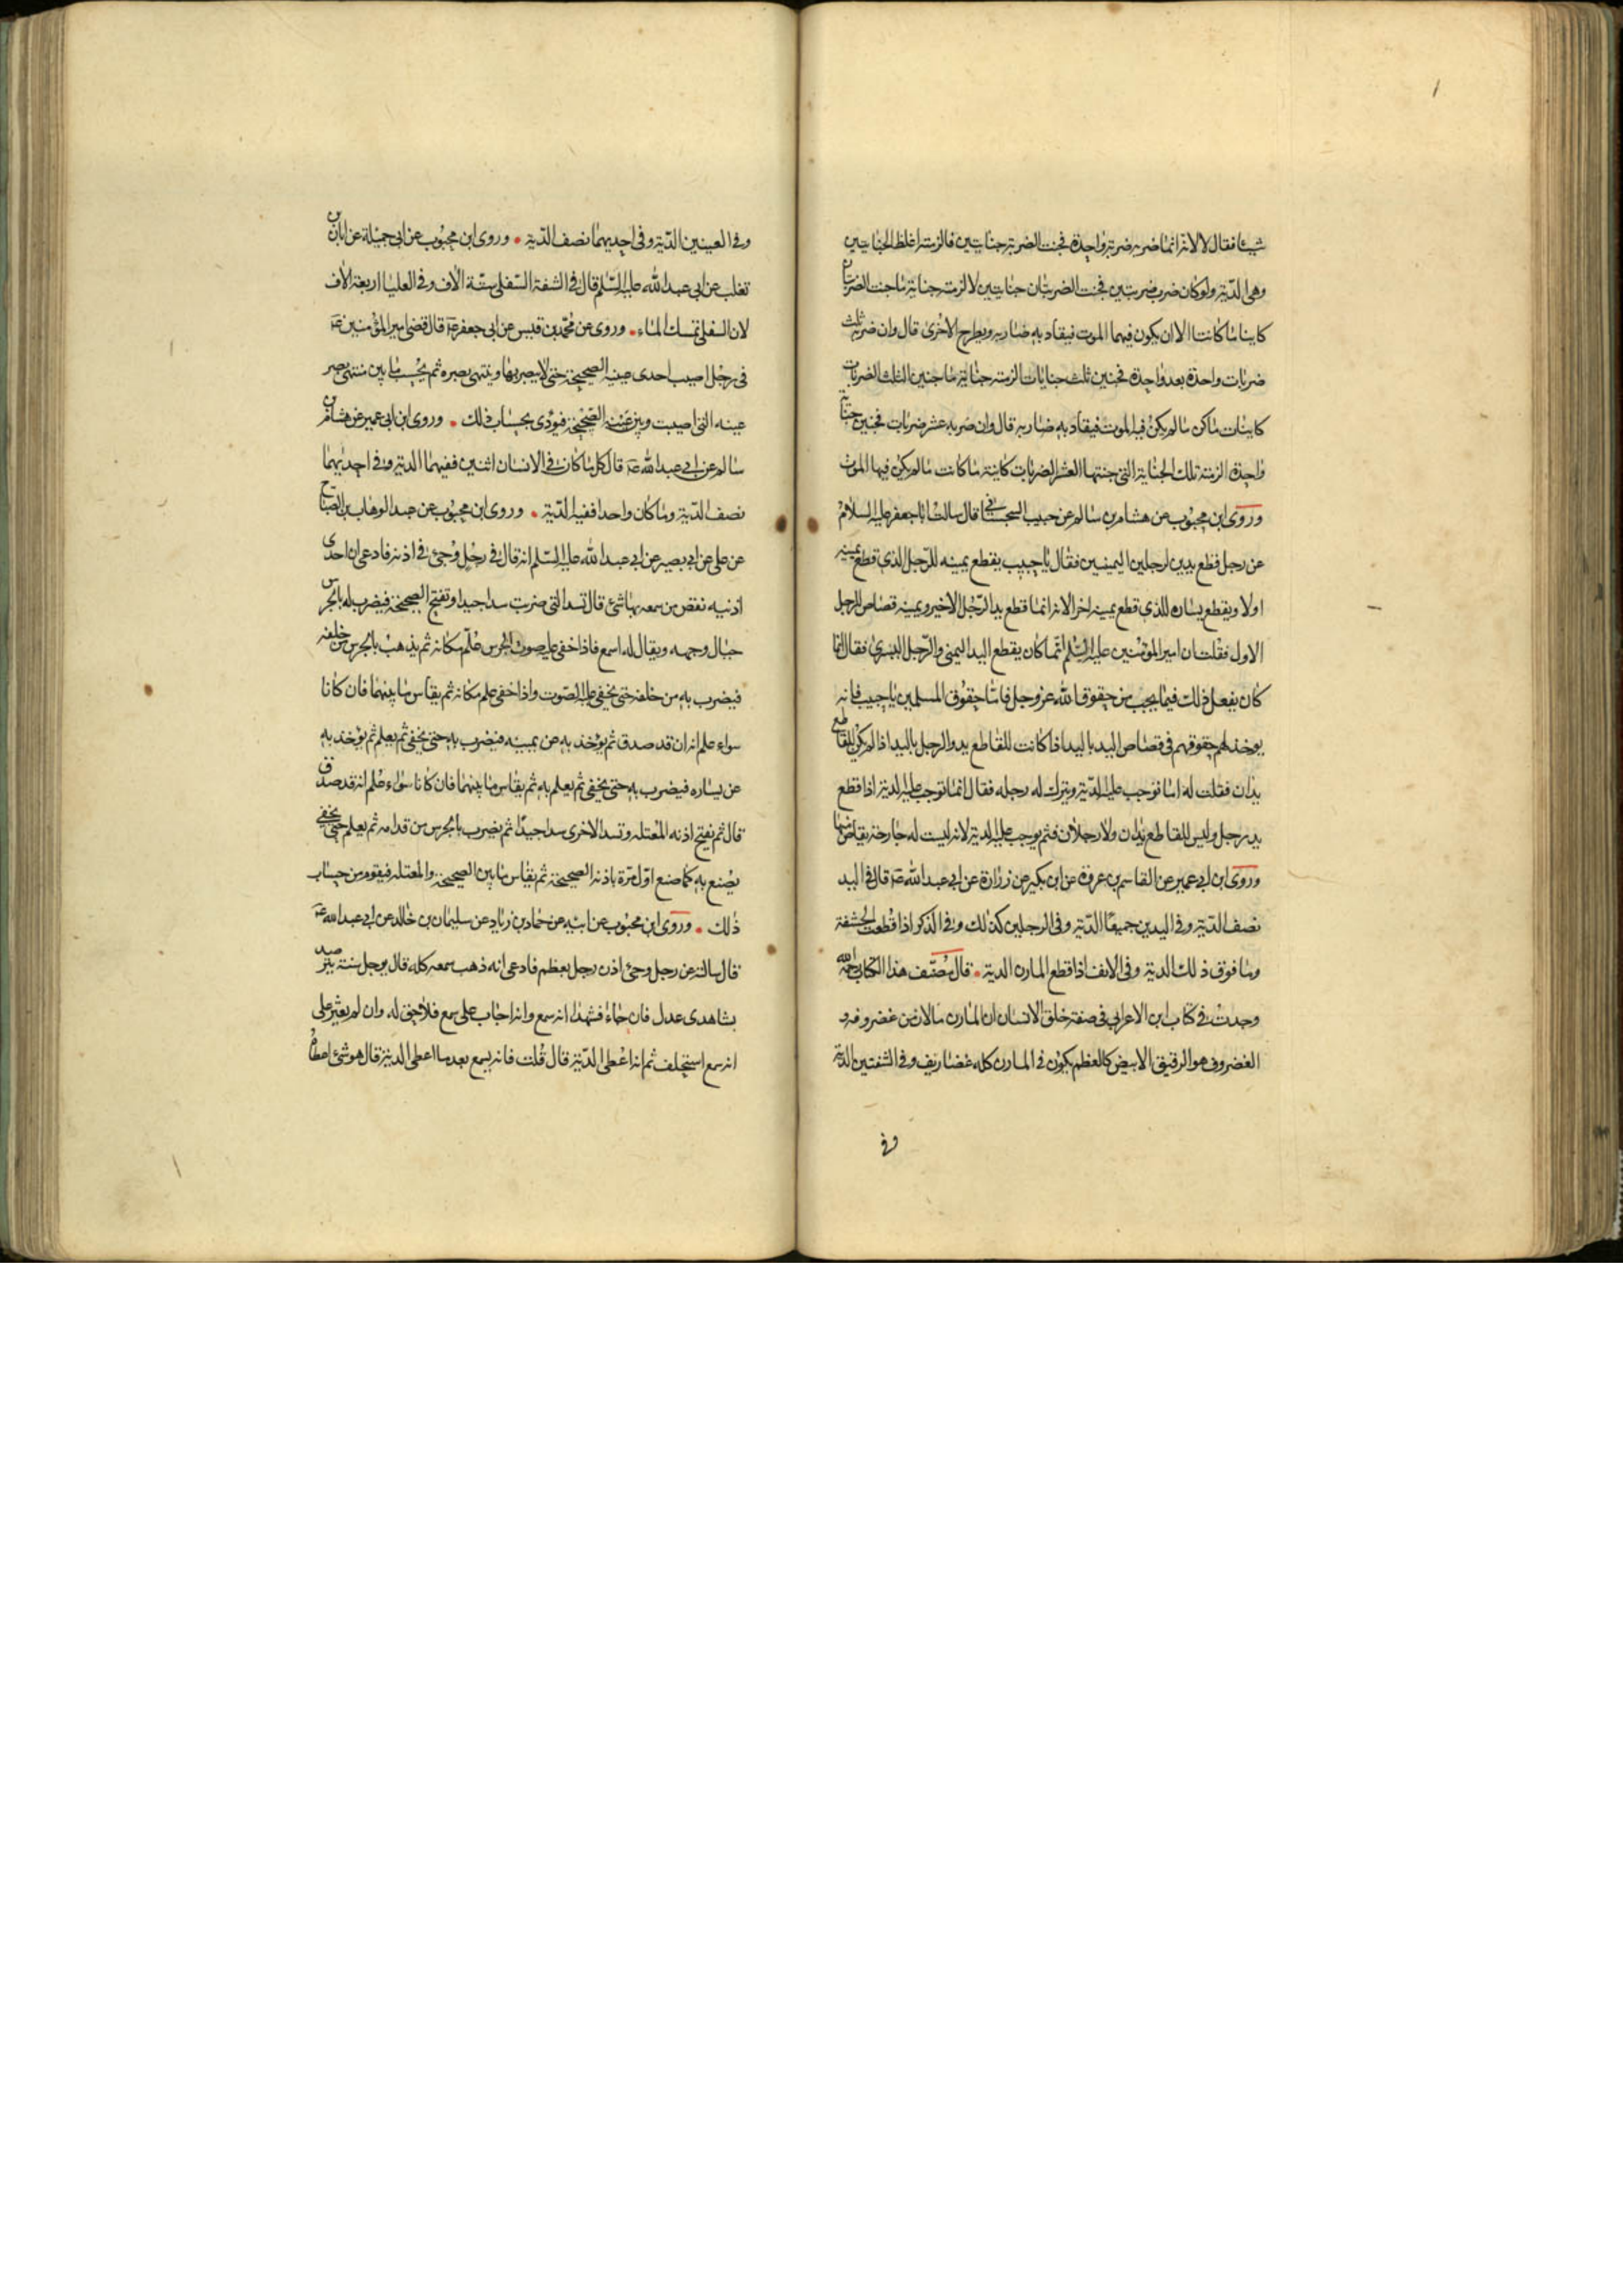 شيئا فقال لا لانه انما ضربه ضربة واحدة فجنت الضربة جنايتين فالزمته اغلظ الجنايتين
وهي الدّية ولو كان ضربه ضربتين فجنت الضربتان جنايتين لالزمته جناية ما جنت الضربتان
كاينا ما كانتا الا ان يكون فيهما الموت فيقاد به ضاربه ويطرح الاخرى قال وان ضربه ثلث
ضربات واحدة بعد واحدة فجنين ثلث جنايات الزمته جناية ما جنين الثلث الضربات
كاينات ما كن ما لم يكن فيه الموت فيقاد به ضاربه قال وان ضربه عشر ضربات فجنين جناية
واحدة الزمته تلك الجناية التي جنتها العشر الضربات كاينة ما كانت ما لم يكن فيها الموت
وروى ابن محبوب عن هشام بن سالم عن حبيب السجستاني قال سالت ابا جعفر عليه السلام
عن رجل قطع يدين لرجلين اليمينين فقال يا حبيب يقطع يمينه للرّجل الذي قطع يمينه
اولا ويقطع يساره للذي قطع يمينه اخرا لانه انما قطع يد الرّجل الاخير ويمينه قصاص للرجل
الاول فقلت ان امير المؤمنين عليه السّلم انّما كان يقطع اليد اليمنى والرّجل اليسرى فقال انما
كان يفعل ذلك فيما يجب من حقوق الله عز وجل فاما حقوق المسلمين يا حبيب فانه
يوخذ لهم حقوقهم في قصاص اليد باليد اذا كانت للقاطع يد والرجل باليد اذا لم يكن للقاطع
يدان فقلت له اما توجب عليه الدّية ويترك له رجله فقال انما توجب عليه الدية اذا قطع
يد رجل وليس للقاطع يدان ولا رجلان فثم يوجب عليه الدية لانه ليست له جارحة يقاص منها
وروى ابن ابي عمير عن القاسم بن عروة عن ابن بكير عن زرارة عن ابي عبد الله عه قال في اليد
نصف الدّية وفي اليدين جميعًا الدّية وفي الرجلين كذلك وفي الذكر اذا قطعت الحشفة
وما فوق ذلك الدية وفي الانف اذا قطع المارن الدية . قال مصنّف هذا الكتاب رحمه الله
وجدت في كتاب ابن الاعرابي في صفة خلق الانسان ان المارن ما لان من غضروفه و
الغضروف هو الرقيق الابيض كالعظم يكون في المارن كله غضاريف وفي الشفتين الدية
وفي
وفي العينين الدّية وفي احديهما نصف الدّية . وروى ابن محبوب عن ابي جميلة عن ابان بن
تغلب عن ابي عبد الله عليه السّلم قال في الشفة السّفلى ستة الاف وفي العليا اربعة الاف
لان السفلى تمسك الماء . وروى عن محمّد بن قيس عن ابي جعفر عه قال قضى امير المؤمنين عه
في رجل اصيب احدى عينيه الصحيحة حتى لا يبصر بها وينتهى بصره ثم يحسب ما بين منتهى بصر
عينه التي اصيبت وبين عينه الصّحيحة فيؤدى بحساب ذلك . وروى ابن ابي عمير عن هشام بن
سالم عن ابي عبد الله عه قال كل ما كان في الانسان اثنين ففيهما الدية وفي احديهما
نصف الدّية وما كان واحدا ففيه الدّية . وروى ابن محبوب عن عبد الوهاب بن الصّباح
عن علي عن ابي بصير عن ابي عبد الله عليه السّلم انه قال في رجل وجئ في اذنه فادعى ان احدى
اذنيه نقص من سمعه بها شئ قال تسد التي ضربت سدا جيدا وتفتح الصحيحة فيضرب له بالجرس
حيال وجهه ويقال له اسمع فاذا خفي عليه صوت الجرس علّم مكانه ثم يذهب بالجرس من خلفه
فيضرب به من خلفه حتى يخفى عليه الصّوت واذا خفي علم مكانه ثم يقاس ما بينهما فان كانا
سواء علم انه ان قد صدق ثم يؤخذ به عن يمينه فيضرب به حتى يخفى ثم يعلم ثم يؤخذ به
عن يساره فيضرب به حتى يخفى ثم يعلم به ثم يقاس ما بينهما فان كانا سواء علم انه قد صدق
قال ثم تفتح اذنه المعتله وتسد الاخرى سدا جيدًا ثم يضرب بالجرس من قدامه ثم يعلم حتى يخفى
يصنع به كما صنع اوّل مرّة باذنه الصحيحة ثم يقاس ما بين الصحيحة والمعتله فيقوم من حساب
ذلك . وروى ابن محبوب عن ابيه عن حماد بن زياد عن سليمان بن خالد عن ابي عبد الله عه
قال سالته عن رجل وجئ اذن رجل بعظم فادعى انه ذهب سمعه كله قال يوجل سنة يترصد
بشاهدى عدل فان جاءا فشهدا انه سمع وانه اجاب على سمع فلا حق له وان لم يعثر على
انه سمع استحلف ثم انه اعطى الدّية قال قلت فانه يسمع بعد ما اعطى الدية قال هو شئ اعطاه